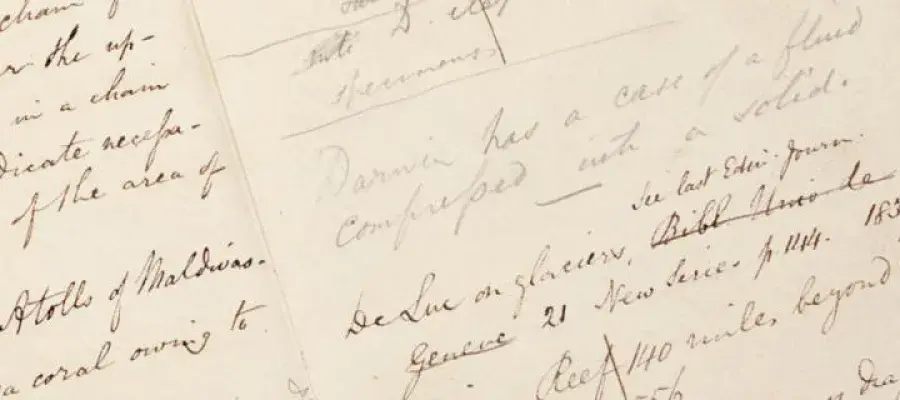 chain of
r the up-
in a chain
dicate necessa-
of the area of
Atolls of Maldivas.
a coral owing to
D.
specimens.
Darwin has a case of a fluid
compressed — into a solid.
See last Edin. Journ.
De Luc on glaciers, Bibl Univ de
Geneve 21 New Series p.144. 183
Reef 140 miles beyond
56